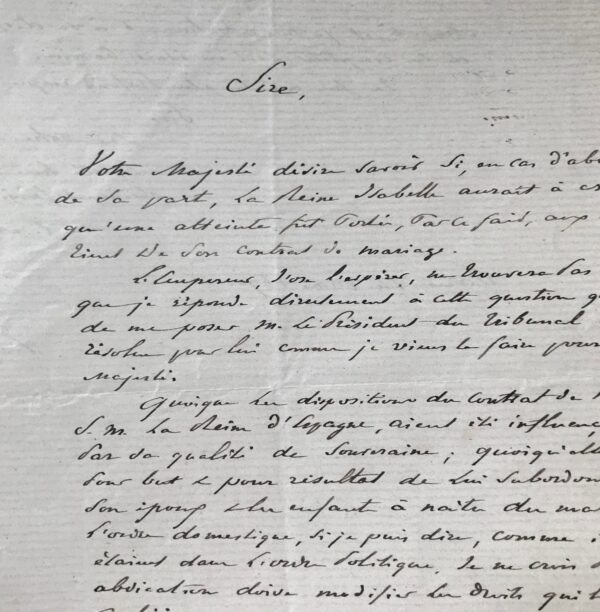 Sire,
Votre Majesté désire savoir si, en cas d'ab
de sa part, la Reine Isabelle aurait à c
qu'une atteinte fut portée, par ce fait, aux
tient de son contrat de mariage.
L'Empereur, j'ose l'espérer, ne trouvera pas
que je réponde directement à cette question q
de me poser M. le Président du Tribunal
résolue par lui comme je viens le faire pour
Majesté.
Quoique les dispositions du contrat de
S. M. la Reine d'Espagne, aient été influenc
par sa qualité de Souveraine ; quoiqu'ell
pour but & pour résultat de lui subordon
son époux & les enfants à naître du ma
l'ordre domestique, si je puis dire, comme i
étaient dans l'ordre politique, je ne crois
abdication doive modifier les droits qui l